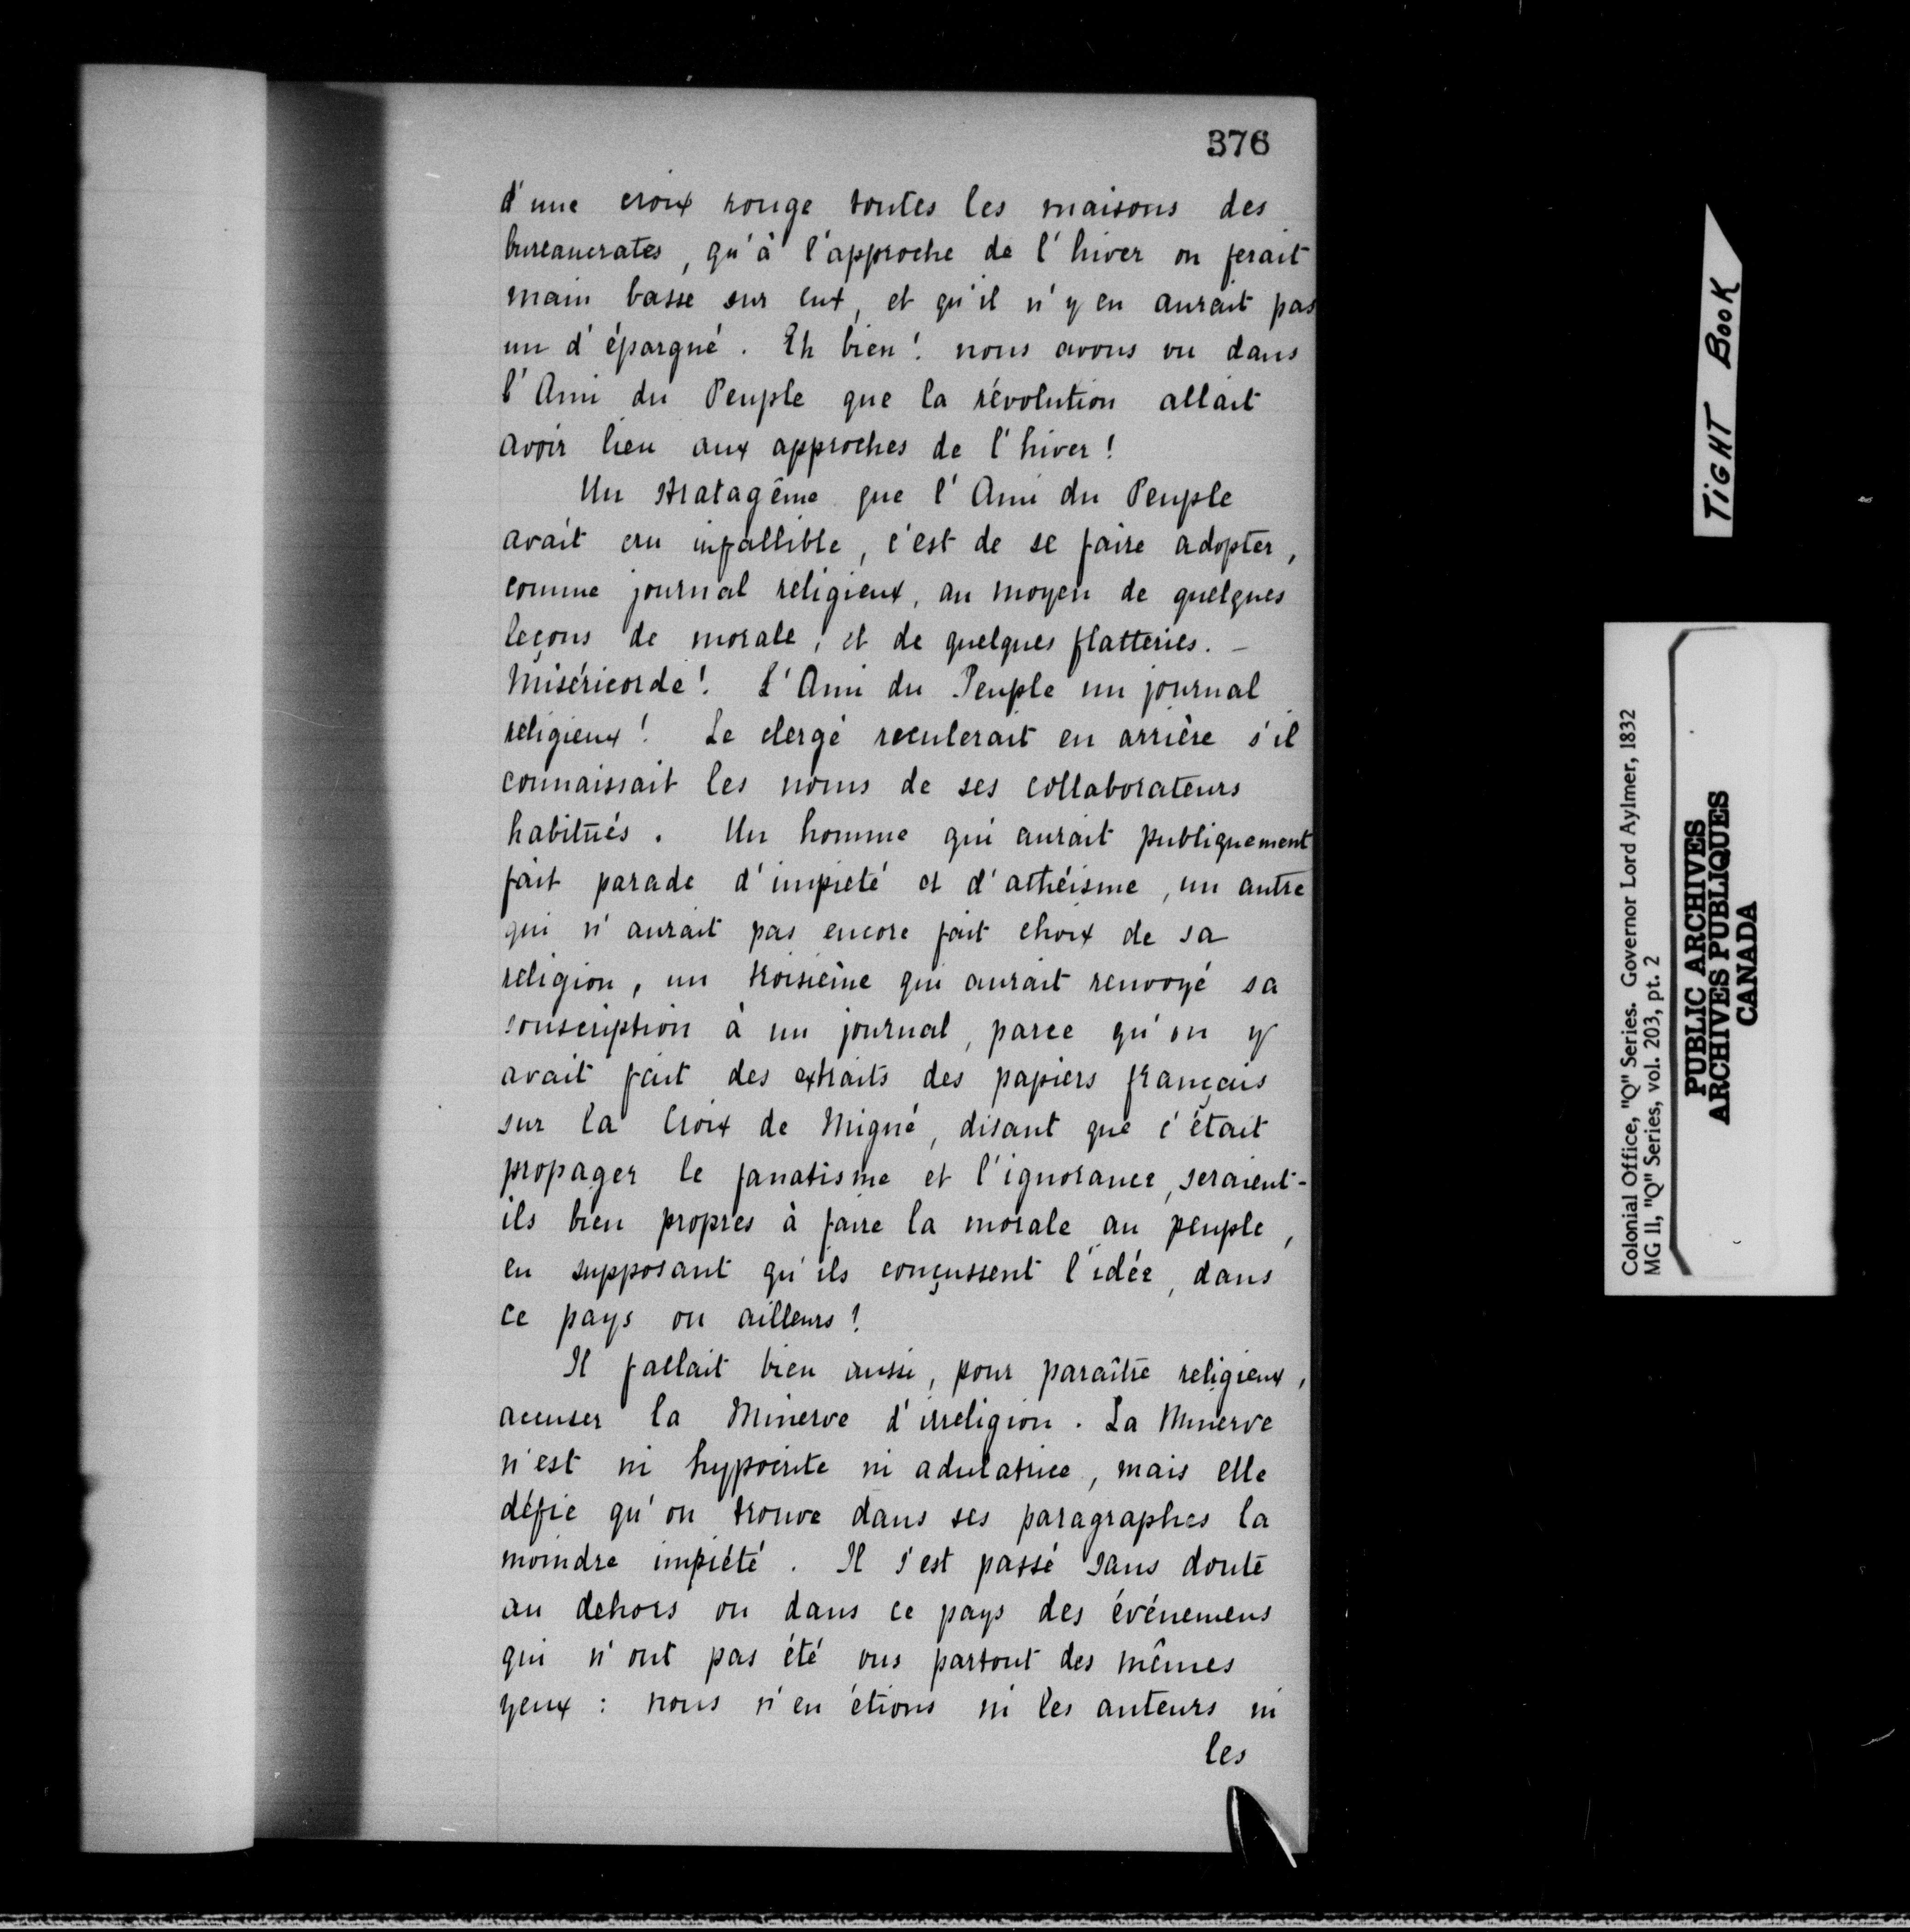 376
d'une croix rouge toutes les maisons des
bureaucrates, qu'à l'approche de l'hiver on ferait
main basse sur eux, et qu'il n'y en aurait pas
un d'épargné. Eh bien! nous avons vu dans
l'Ami du Peuple que la révolution allait
avoir lieu aux approches de l'hiver!
Un stratagême que l'Ami du Peuple
avait cru infallible, c'est de se faire adopter,
comme journal religieux, au moyen de quelques
leçons de morale, et de quelques flatteries. –
Miséricorde! L'Ami du Peuple un journal
religieux! Le clergé reculerait en arrière s'il
connaissait les noms de ses collaborateurs
habitués. Un homme qui aurait publiquement
fait parade d'impieté et d'athéisme, un autre
qui n'aurait pas encore fait choix de sa
religion, un troisième qui aurait renvoyé sa
souscription à un journal, parce qu'on y
avait fait des extraits des papiers français
sur la Croix de Migné, disant que c'était
propager le fanatisme et l'ignorance, seraient-
ils bien propres à faire la morale au peuple,
en supposant qu'ils conçussent l'idée, dans
ce pays ou ailleurs?
Il fallait bien aussi, pour paraître religieux,
accuser la Minerve d'irreligion. La Minerve
n'est ni hypocrite ni adulatrice, mais elle
défie qu'on trouve dans ses paragraphes la
moindre impiété. Il s'est passé sans doute
au dehors ou dans ce pays des événemens
qui n'ont pas été vus partout des mêmes
yeux: nous n'en étions ni les auteurs ni
les
TIGHT BOOK
Colonial Office, "Q" Series. Governor Lord Aylmer, 1832
MG 11, "Q" Series, vol. 203, pt. 2
PUBLIC ARCHIVES
ARCHIVES PUBLIQUES
CANADA